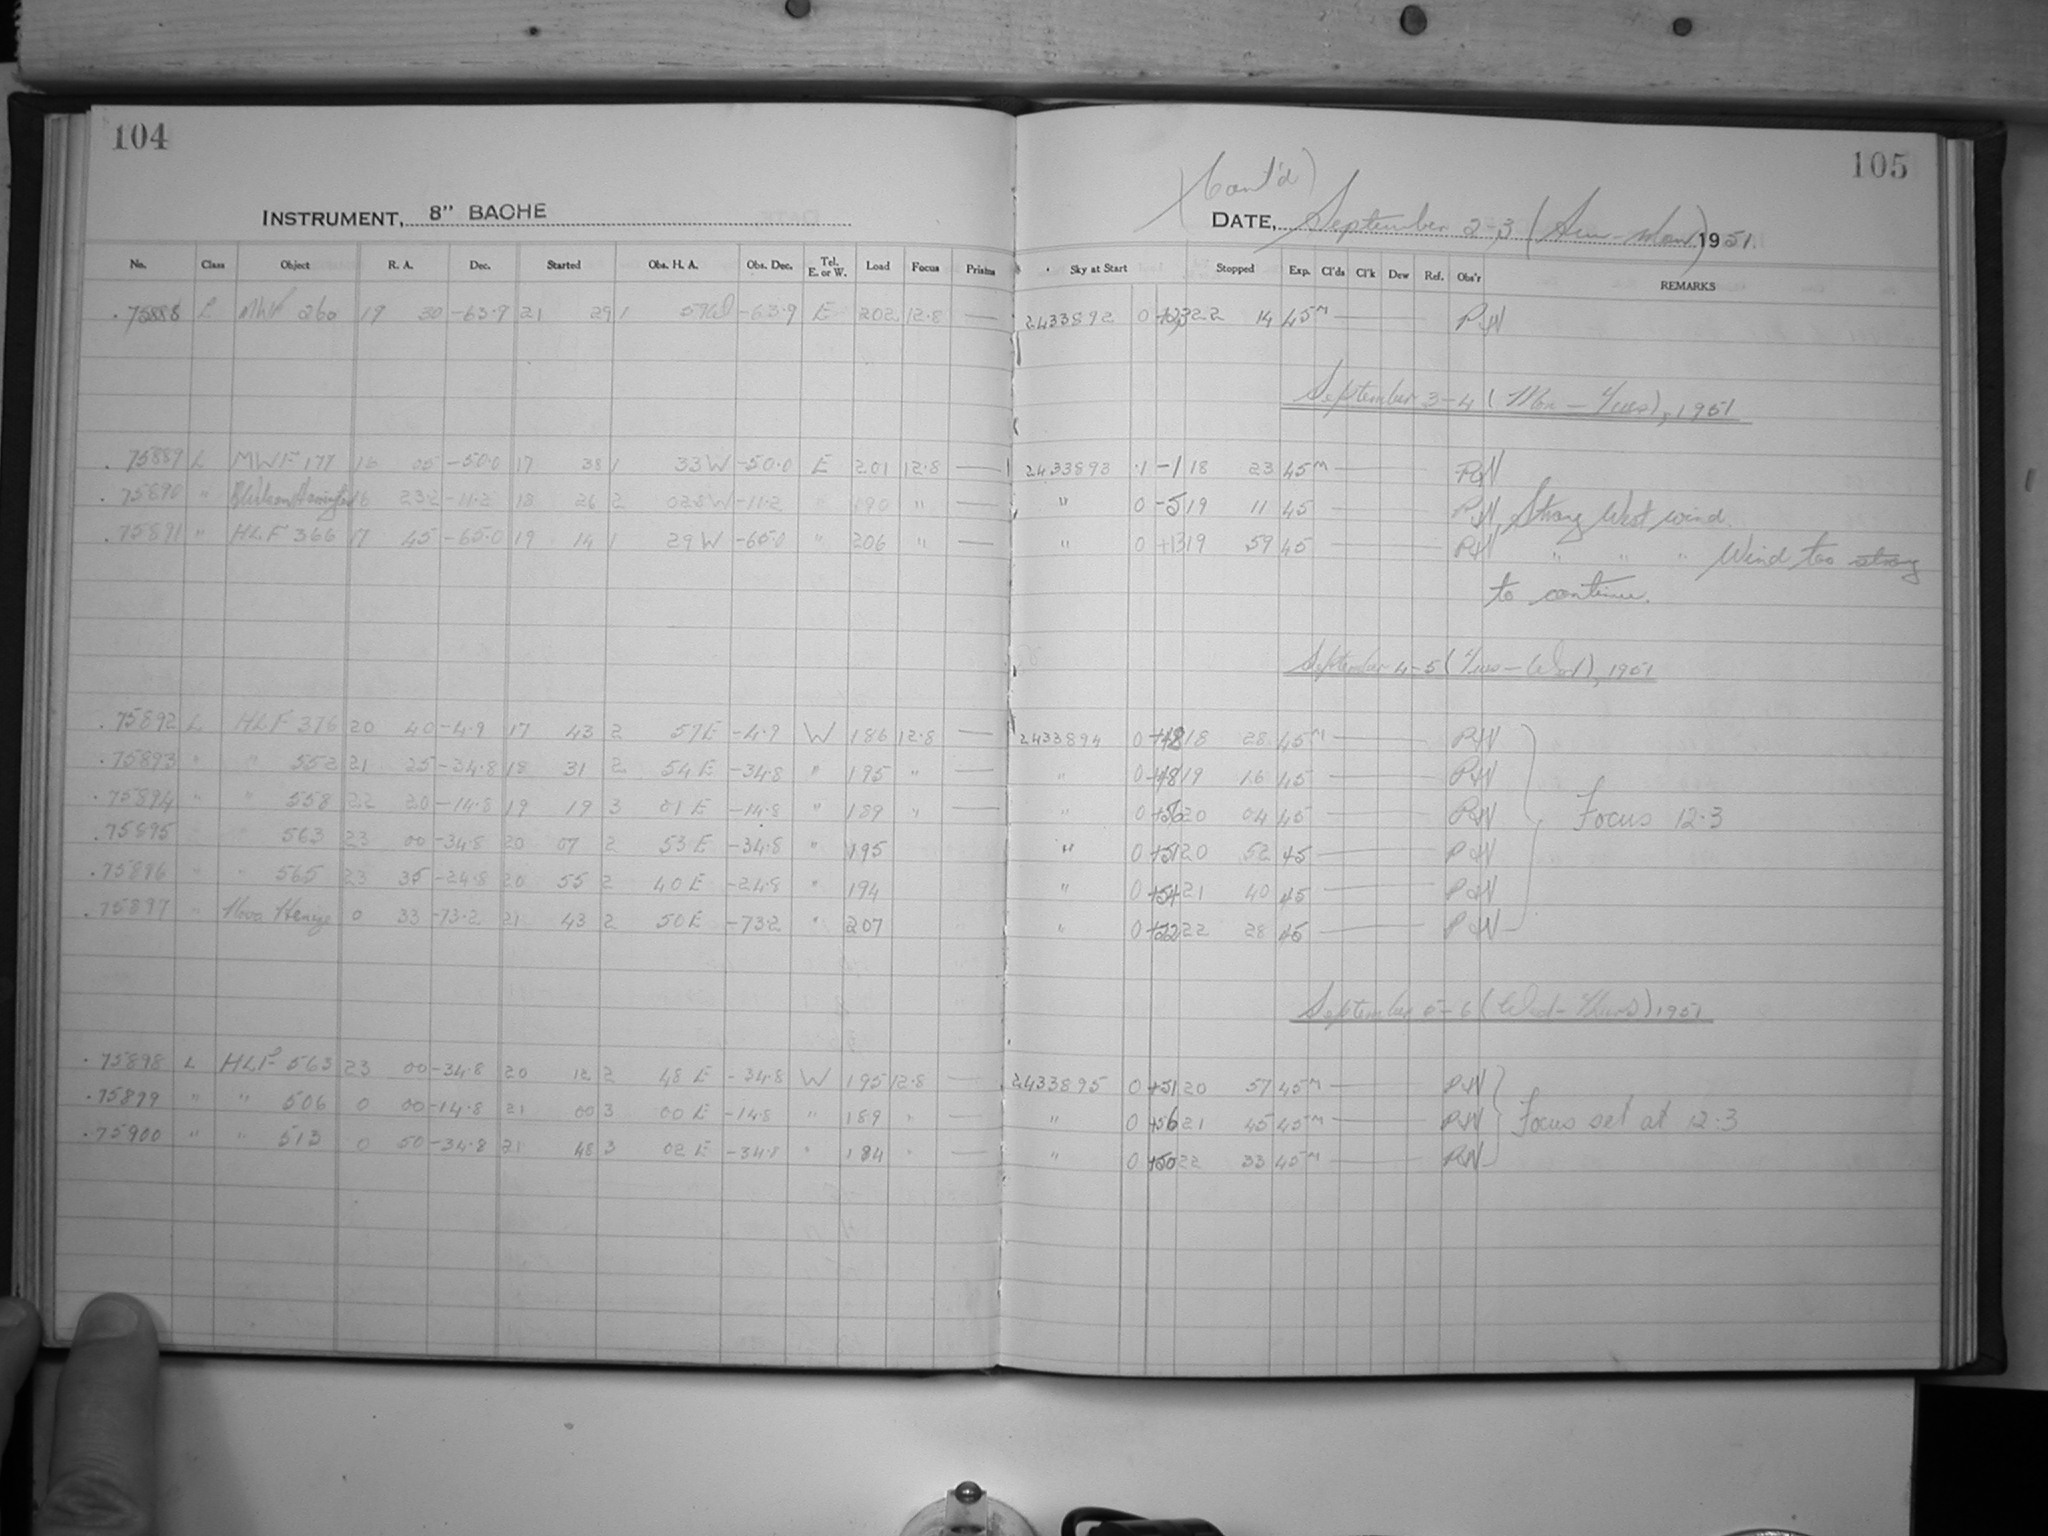 104
105
(Cont'd)
INSTRUMENT, 8" BACHE
DATE, September 2-3 (Sun-Mon) 1951.
No. Class Object R. A. Dec. Started Obs. H. A. Obs. Dec. Tel. E. or W. Load Focus Prisms Sky at Start Stopped Exp. Cl'ds Cl'k Dew Ref. Obs'r REMARKS
75888 L MWF 260 19 30 -63.9 21 29 1 57W -63.9 E 202 12.8 — 2433892 0 22 14 45m
September 3-4 (Mon-Tues), 1951
75889 L MWF 177 16 05 -50.0 17 38 1 33W -50.0 E 201 12.8 — 2433893 .1 -1 18 23 45m
75890 " 16 23.2 -11.2 18 26 2 02.8W -11.2 " 190 " — " 0 -5 19 11 45 Strong West wind.
75891 " HLF 366 17 45 -65.0 19 14 1 29W -65.0 " 206 " — " 0 +13 19 59 45 " " " Wind too strong
to continue.
September 4-5 (Tues-Wed), 1951
75892 L HLF 376 20 40 -4.9 17 43 2 57E -4.9 W 186 12.8 — 2433894 0 18 28 45m
75893 " " 552 21 25 -34.8 18 31 2 54E -34.8 " 195 " — " 0 19 16 45
75894 " " 558 22 20 -14.8 19 19 3 01E -14.8 " 189 " — " 0 20 04 45 Focus 12.3
75895 563 23 00 -34.8 20 07 2 53E -34.8 " 195 " 0 +51 20 52 45
75896 " " 565 23 35 -24.8 20 55 2 40E -24.8 " 194 " 0 +54 21 40 45
75897 " Nova Henize 0 33 -73.2 21 43 2 50E -73.2 " 207 " 0 +22 22 28 45
September 5-6 (Wed-Thurs) 1951
75898 L HLF 563 23 00 -34.8 20 12 2 48E -34.8 W 195 12.8 — 2433895 0 +51 20 57 45m
75899 " " 506 0 00 -14.8 21 00 3 00E -14.8 " 189 " — " 0 +56 21 45 45m Focus set at 12.3
75900 " " 513 0 50 -34.8 21 48 3 02E -34.8 " 184 " — " 0 +50 22 33 45m